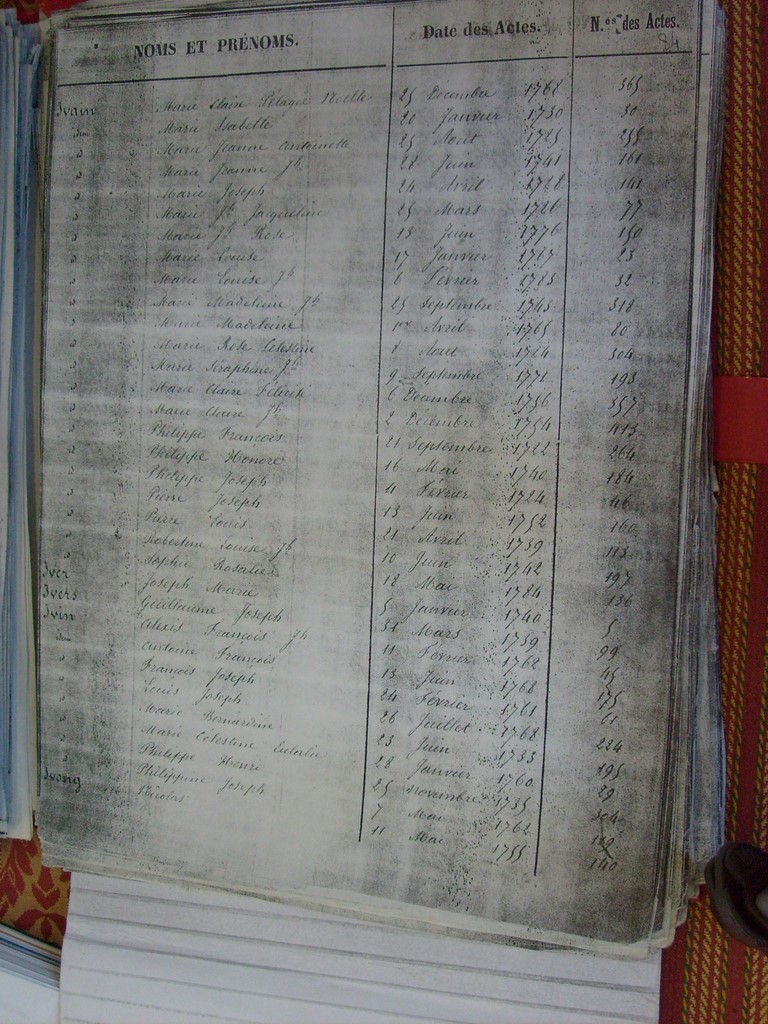 NOMS ET PRÉNOMS. Date des Actes. N.os des Actes.
84
Ivain Marie Claire Pélagie Noelle 25 Décembre 1768 365
idem Marie Isabelle 20 Janvier 1730 30
" Marie Jeanne Antoinette 25 Aout 1725 255
" Marie Jeanne Jh 28 Juin 1741 161
" Marie Joseph 24 Avril 1728 141
" Marie Jh Jacqueline 25 Mars 1726 77
" Marie Jh Rose 13 Juin 1776 150
" Marie Louise 17 Janvier 1767 23
" Marie Louise Jh 6 Février 1783 32
" Marie Madeleine Jh 25 Septembre 1743 318
" Marie Madeleine 1er Avril 1765 80
" Marie Rose Célestine 8 Aout 1724 304
" Marie Séraphine Jh 9 Septembre 1771 193
" Marie Claire Félicité 6 Décembre 1756 357
" Marie Claire Jh 2 Décembre 1754 413
" Philippe François 21 Septembre 1722 264
" Philippe Honoré 16 Mai 1740 184
" Philippe Joseph 4 Février 1724 46
" Pierre Joseph 13 Juin 1752 160
" Pierre Louis 21 Avril 1739 113
" Robertine Louise Jh 10 Juin 1742 197
" Sophie Rosalie 18 Mai 1784 136
Iver Joseph Marie 5 Janvier 1740 5
Ivers Guillaume Joseph 31 Mars 1739 99
Ivin Alexis François Jh 11 Février 1762 45
idem Antoine François 13 Juin 1768 175
" François Joseph 24 Février 1761 61
" Louis Joseph 26 Juillet 1768 224
" Marie Bernardine 23 Juin 1733 195
" Marie Célestine Eulalie 28 Janvier 1760 29
" Philippe Henri 25 Novembre 1735 304
" Philippine Joseph 7 Mai 1762
Ivong Nicolas 11 Mai 1755 140